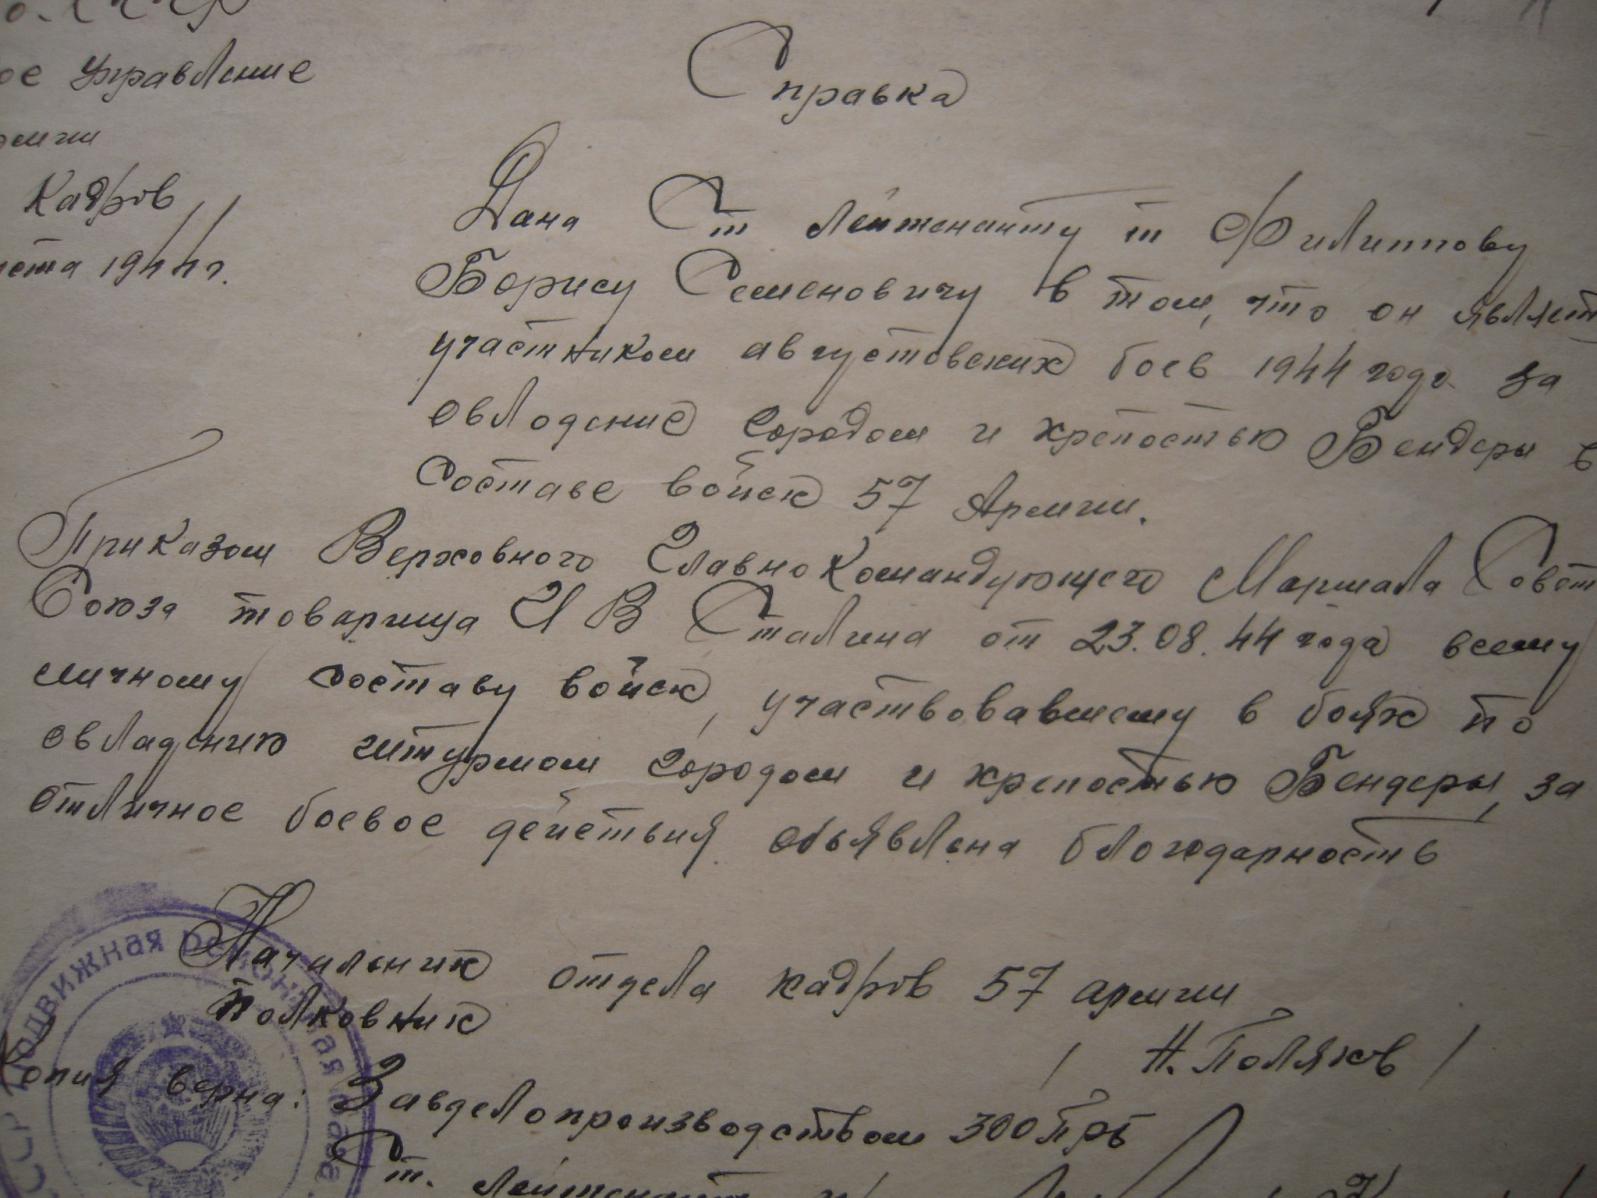 ое Управление
Справка
армии
Кадров
1944 г.
Дана Ст лейтенанту т Филиппову
Борису Семеновичу в том, что он являет
участником августовских боев 1944 года за
овлодение городом и крепостью Бендеры в
составе войск 57 Армии.
Приказом Верховного Главнокомандующего Маршала Совет
Союза товарища И В Сталина от 23.08.44 года всему
личному составу войск, участвовавшему в боях по
овладению штурмом городом и крепостью Бендеры, за
отличное боевое действия объявлена благодарность
Начальник отдела кадров 57 армии
полковник
/ Н. Поляков /
Копия верна: Завделопроизводством 300 Прб
Ст. лейтенант
СССР Подвижная ремонтная база